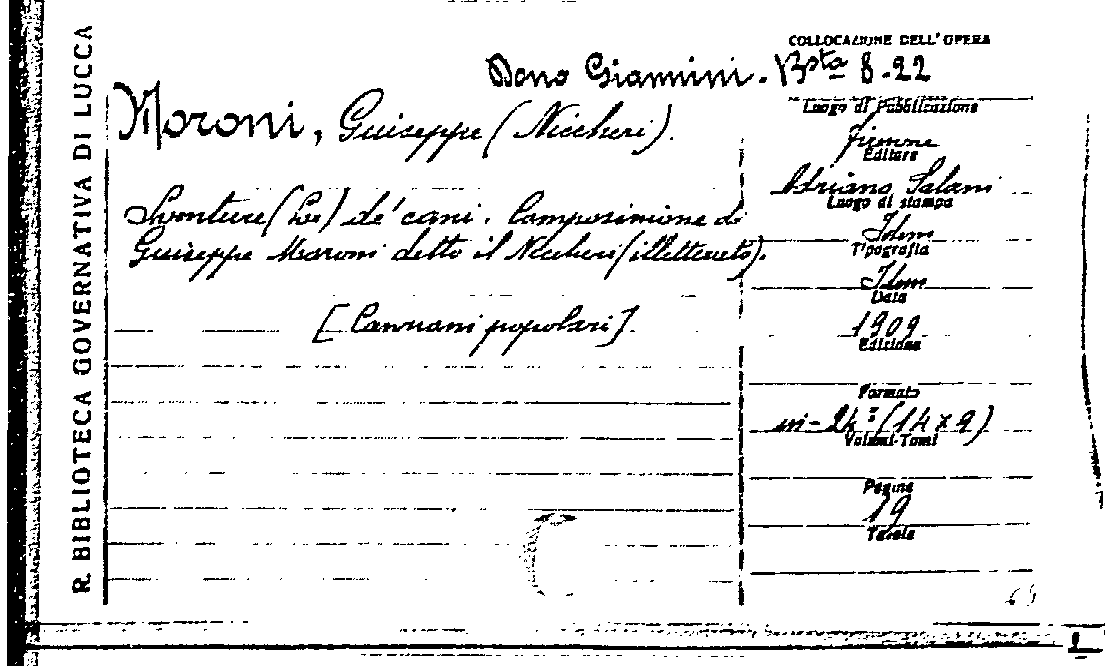 R. BIBLIOTECA GOVERNATIVA DI LUCCA
COLLOCAZIONE DELL'OPERA
Dono Giannini. Bsta 8-22
Moroni, Giuseppe (Niccheri).
Sventure (Le) de' cani. Composizione di
Giuseppe Moroni detto il Niccheri (illetterato).
[Canzoni popolari].
Luogo di Pubblicazione
Firenze
Editore
Adriano Salani
Luogo di stampa
Idem
Tipografia
Idem
Data
1909
Edizione
Formato
in-24° (14x9)
Volumi-Tomi
Pagine
19
Tavole